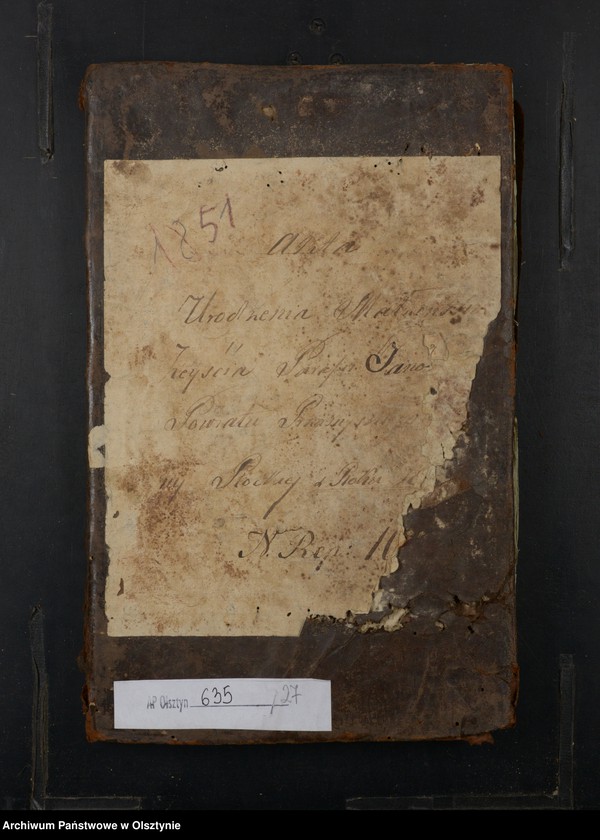 1851
Akta
Urodzenia Małżeńs
Zeyścia Parafii Jano
Powiatu Przasnys
ny Płockiej z Roku
N. Rep: 11
AP Olsztyn 635 / 27
Archiwum Państwowe w Olsztynie